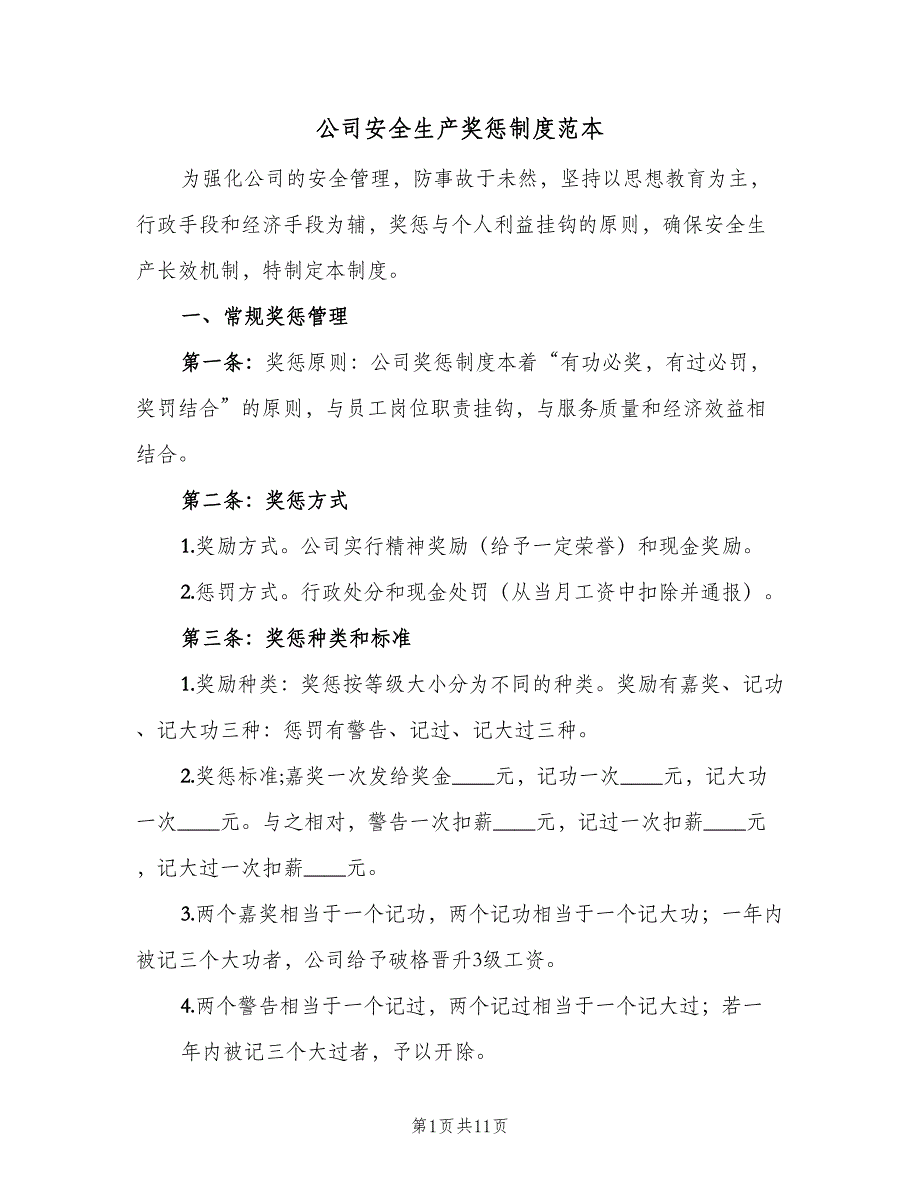 公司安全生产奖惩制度范本
为强化公司的安全管理，防事故于未然，坚持以思想教育为主，
行政手段和经济手段为辅，奖惩与个人利益挂钩的原则，确保安全生
产长效机制，特制定本制度。
一、常规奖惩管理
第一条：奖惩原则：公司奖惩制度本着“有功必奖，有过必罚，
奖罚结合”的原则，与员工岗位职责挂钩，与服务质量和经济效益相
结合。
第二条：奖惩方式
1.奖励方式。公司实行精神奖励（给予一定荣誉）和现金奖励。
2.惩罚方式。行政处分和现金处罚（从当月工资中扣除并通报）。
第三条：奖惩种类和标准
1.奖励种类：奖惩按等级大小分为不同的种类。奖励有嘉奖、记功
、记大功三种：惩罚有警告、记过、记大过三种。
2.奖惩标准;嘉奖一次发给奖金____元，记功一次____元，记大功
一次____元。与之相对，警告一次扣薪____元，记过一次扣薪____元
，记大过一次扣薪____元。
3.两个嘉奖相当于一个记功，两个记功相当于一个记大功；一年内
被记三个大功者，公司给予破格晋升3级工资。
4.两个警告相当于一个记过，两个记过相当于一个记大过；若一
年内被记三个大过者，予以开除。
第1页共11页